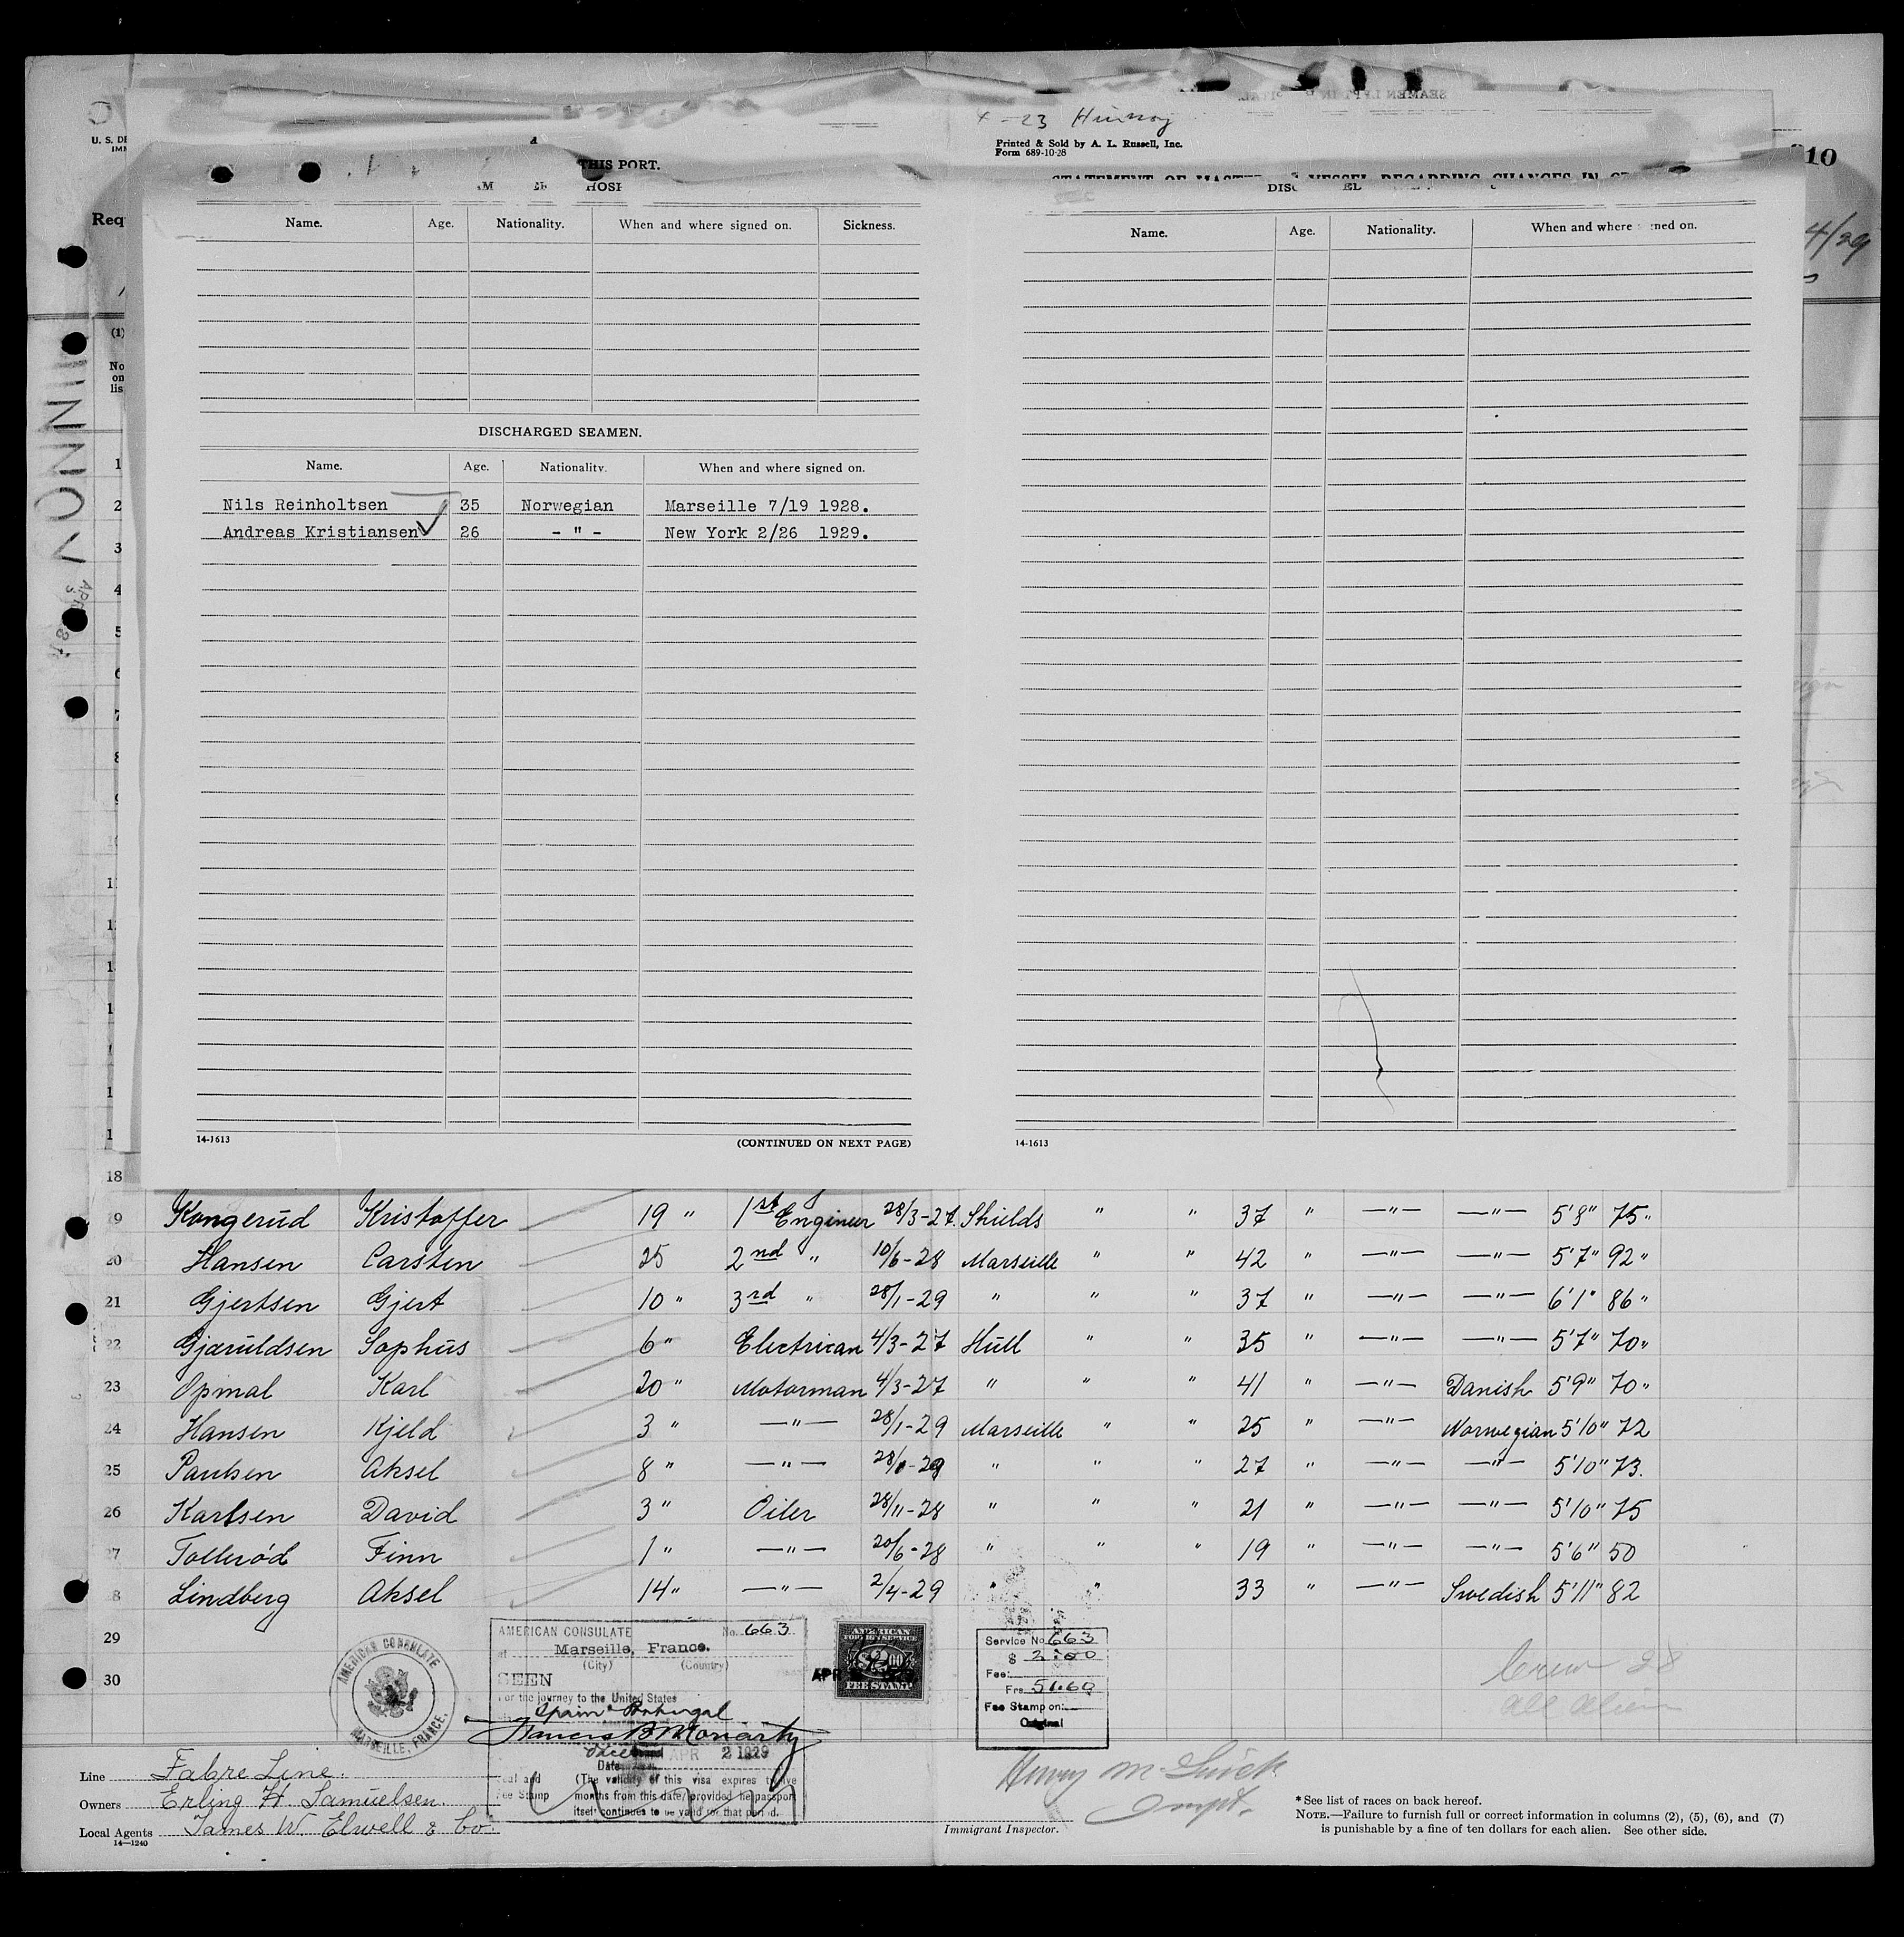 4-23 Hinnoy
Printed & Sold by A. L. Russell, Inc.
Form 689-10-28
10
U. S. DE
IMM
THIS PORT.
STATEMENT OF MASTER OF VESSEL REGARDING CHANGES IN
Req
4/29
Name. Age. Nationality. When and where signed on. Sickness.
Name. Age. Nationality. When and where signed on.
(1)
No
on
lis
HINNOY
DISCHARGED SEAMEN.
Name. Age. Nationality. When and where signed on.
Nils Reinholtsen 35 Norwegian Marseille 7/19 1928.
Andreas Kristiansen 26 - " - New York 2/26 1929.
1
2
3
4
5
6
7
8
14-1613 (CONTINUED ON NEXT PAGE)
14-1613
18
19 Kongerud Kristoffer 19 " 1st Engineer 28/3-27 Shields " " 37 " —"— —"— 5'8" 75"
20 Hansen Carsten 25 2nd " 10/6-28 Marseille " " 42 " —"— —"— 5'7" 92"
21 Gjertsen Gjert 10 " 3rd " 28/1-29 " " " 37 " —"— —"— 6'1" 86"
22 Gjæruldsen Sophus 6 " Electrican 4/3-27 Hull " " 35 " —"— —"— 5'7" 70"
23 Opmal Karl 20 " Motorman 4/3-27 " " 41 " —"— Danish 5'9" 70"
24 Hansen Kjeld 3 " —"— 28/1-29 Marseille " " 25 " —"— Norwegian 5'10" 72
25 Paulsen Aksel 8 " —"— 28/1-29 " " " 27 " —"— —"— 5'10" 73.
26 Karlsen David 3 " Oiler 28/11-28 " " " 21 " —"— —"— 5'10" 75
27 Tollerød Finn 1 " —"— 20/6-28 " " " 19 " —"— —"— 5'6" 50
28 Lindberg Aksel 14 " —"— 2/4-29 " " 33 " —"— Swedish 5'11" 82
29
30
AMERICAN CONSULATE
MARSEILLE, FRANCE.
AMERICAN CONSULATE No. 663
at Marseille, France.
(City) (Country)
SEEN
For the journey to the United States
Spain & Portugal
Francis B Moriarty
APR 2 1929
Date
Seal and
Fee Stamp
(The validity of this visa expires twelve
months from this date, provided the passport
itself continues to be valid for that period.
AMERICAN
FOREIGN SERVICE
$2.00
FEE STAMP
APR
Service No. 663
$ 2.00
Fee:
Frs 51.60
Fee Stamp on:
Original
Crew 28
all alien
Line Fabre Line.
Owners Erling H. Samuelsen.
Local Agents James W. Elwell & Co.
14—1240
Immigrant Inspector.
*See list of races on back hereof.
NOTE.—Failure to furnish full or correct information in columns (2), (5), (6), and (7)
is punishable by a fine of ten dollars for each alien. See other side.